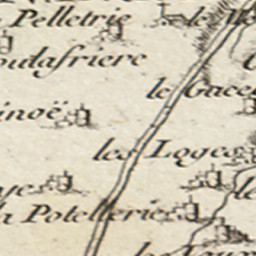 Pelletrie
le
oudafriere
le Gace
inoë
les Loges
ye
le
a Potelleries